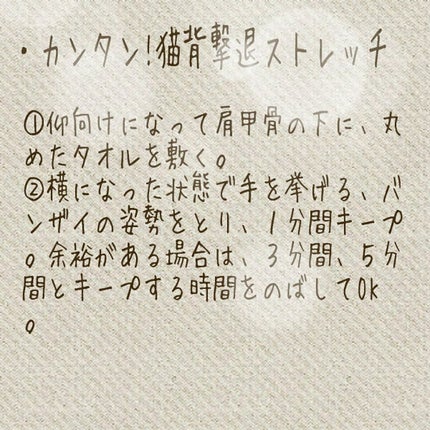 ・カンタン!猫背撃退ストレッチ
①仰向けになって肩甲骨の下に、丸
めたタオルを敷く。
②横になった状態で手を挙げる、バ
ンザイの姿勢をとり、1分間キープ
。余裕がある場合は、3分間、5分
間とキープする時間をのばしてOK
。